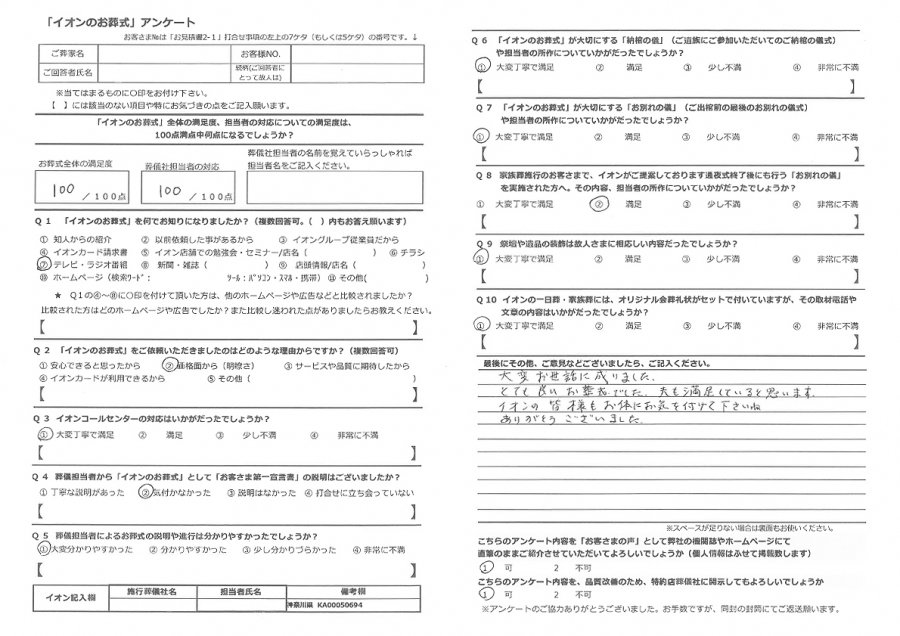 「イオンのお葬式」アンケート
お客さま№は「お見積書2-1」打合せ事項の左上の7ケタ（もしくは5ケタ）の番号です。↓
ご葬家名
お客様NO.
ご回答者氏名
続柄(ご回答者にとって故人は)
※当てはまるものに〇印をお付け下さい。
【　】には該当のない項目や特にお気づきの点をご記入願います。
「イオンのお葬式」全体の満足度、担当者の対応についての満足度は、
100点満点中何点になるでしょうか？
お葬式全体の満足度
100 ／100点
葬儀社担当者の対応
100 ／100点
葬儀社担当者の名前を覚えていらっしゃれば
担当者名をご記入ください。
Q 1　「イオンのお葬式」を何でお知りになりましたか？（複数回答可。(　) 内もお答え願います）
① 知人からの紹介　② 以前依頼した事があるから　③ イオングループ従業員だから
④ イオンカード請求書　⑤ イオン店舗での勉強会・セミナー/店名（　）　⑥ チラシ
⑦ テレビ・ラジオ番組　⑧ 新聞・雑誌（　）　⑨ 店頭情報/店名（　）
⑩ ホームページ（検索ﾜｰﾄﾞ：　ﾂｰﾙ：ﾊﾟｿｺﾝ・ｽﾏﾎ・携帯）⑪ その他(　)
★ Q1の④～⑧に〇印を付けて頂いた方は、他のホームページや広告などと比較されましたか？
比較された方はどのホームページや広告でしたか？また比較し迷われた点がありましたらお教えください。
【　】
Q 2　「イオンのお葬式」をご依頼いただきましたのはどのような理由からですか？（複数回答可）
① 安心できると思ったから　② 価格面から（明瞭さ）　③ サービスや品質に期待したから
④ イオンカードが利用できるから　⑤ その他（　）
【　】
Q 3　イオンコールセンターの対応はいかがだったでしょうか？
① 大変丁寧で満足　②　満足　③　少し不満　④　非常に不満
【　】
Q 4　葬儀担当者から「イオンのお葬式」として「お客さま第一宣言書」の説明はございましたか？
① 丁寧な説明があった　② 気付かなかった　③ 説明はなかった　④ 打合せに立ち会っていない
【　】
Q 5　葬儀担当者によるお葬式の説明や進行は分かりやすかったでしょうか？
① 大変分かりやすかった　② 分かりやすかった　③ 少し分かりづらかった　④ 非常に不満
【　】
イオン記入欄
施行葬儀社名
担当者氏名
備考欄
神奈川県 KA00050694
Q 6　「イオンのお葬式」が大切にする「納棺の儀」（ご遺族にご参加いただいてのご納棺の儀式）
や担当者の所作についていかがだったでしょうか？
①　大変丁寧で満足　②　満足　③　少し不満　④　非常に不満
【　】
Q 7　「イオンのお葬式」が大切にする「お別れの儀」（ご出棺前の最後のお別れの儀式）
や担当者の所作についていかがだったでしょうか？
①　大変丁寧で満足　②　満足　③　少し不満　④　非常に不満
【　】
Q 8　家族葬施行のお客さまで、イオンがご提案しております通夜式終了後にも行う「お別れの儀」
を実施された方へ。その内容、担当者の所作についていかがだったでしょうか？
①　大変丁寧で満足　②　満足　③　少し不満　④　非常に不満
【　】
Q 9　祭壇や遺品の装飾は故人さまに相応しい内容だったでしょうか？
①　大変丁寧で満足　②　満足　③　少し不満　④　非常に不満
【　】
Q 10　イオンの一日葬・家族葬には、オリジナル会葬礼状がセットで付いていますが、その取材電話や
文章の内容はいかがだったでしょうか？
①　大変丁寧で満足　②　満足　③　少し不満　④　非常に不満
【　】
最後にその他、ご意見などございましたら、ご記入ください。
大変お世話に成りました。
とても良いお葬式でした。夫も満足していると思います。
イオンの皆様もお体にお気を付けて下さいね
ありがとうございました。
※スペースが足りない場合は裏面もお使いください。
こちらのアンケート内容を「お客さまの声」として弊社の機関誌やホームページにて
直筆のままご紹介させていただいてよろしいでしょうか（個人情報はふせて掲載致します）
1　可　2　不可
こちらのアンケート内容を、品質改善のため、特約店葬儀社に開示してもよろしいでしょうか
1　可　2　不可
※アンケートのご協力ありがとうございました。お手数ですが、同封の封筒にてご返送願います。